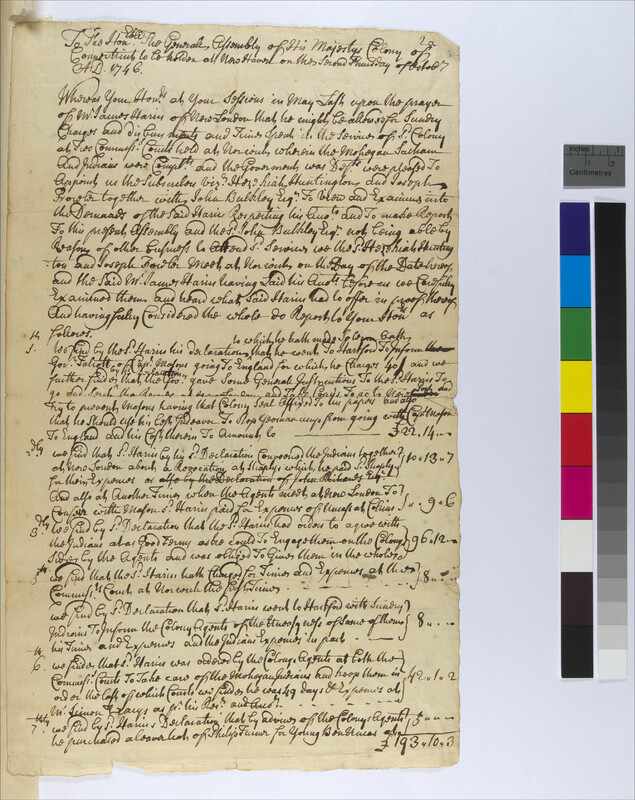 To The Hon:ble The General Assembly of His Majestys Colony of
Connecticut to be holden at New Haven on the Second Thursday of Octobr
A:D. 1746.
Whereas Your Hon:rs at Your Sessions in May Last upon the prayer
of Mr James Harris of New London that he might be allowed for Sundry
Charges and disbursments and Times Spent in the Service of Sd Colony
at Two Commissrs Courts held at Norwich wherein the Mohegan Sachem
And Indians were Complts and the Goverment was Defts were pleased To
Appoint us the Subscribers viz: Hezekiah Huntington and Joseph
Fowler together with John Bulkley Esqr To View and Examine into
the Demands of the Said Harris Respecting his Accts and To make Report
To this present Assembly and the Sd John Bulkley Esqr not being able by
Reason of other Business to Attend Sd Service we the Sd Hezekiah Hunting
ton and Joseph Fowler Meet at Norwich on the Day of the Date hereof
and the Said Mr James Harris having Laid his Accts before us we Carefully
Examined them and heard what Said Harris had to offer in proof thereof
And having fully Considered the whole do Report to Your Honrs as
follows.
to which he hath made Solemn Oath
1. We find by the Sd Harris his declaration that he went To Hartford To Inform the
Govr Talcott of Capt Masons going To England for which he Charges 40/ and we
further find that the Govr gave Some General Instructions To the Sd Harris To
go and
try to prevent Masons having that Colony Seal Affixed To his papers and also
that he Should use his best Endeavour To Stop Yeoman from going with Capt Mason
To England and his Cost therein To Amounts to £22,,14,,
2dly we find that Sd Harris by his Sd Declaration Convened the Indians together
at New London about a at Shapleys which he pd Sd Shapley
for their Expenses as also by the Declaration of John Richards Esqr 10,,13,,7
And also at Another Time when the Agents meet at New London To
Confer with Mason Sd Harris paid for Expenses of 9,,6
3dly We find by Sd Declaration that the Sd Harris had orders to agree with
the Indians at as Good Terms as he Could To Engage them on the Colony
Side by the Agents and was obliged To Give them in the whole 96,,12,,
5th we find that the Sd Harris hath Charged for Times and Expenses at the
Commissrs Court at Norwich the first Time 8,,
we find by Sd Declaration that Sd Harris went to Hartford with Sundry
Indians To Inform the Colony Agents of the of Some of them
his Time and Expenses and the Indians Expenses in part 8,,
6th we find that Sd Harris was ordered by the Colony Agents at both the
Commissrs Courts To Take care of the Mohegan Indians and keep them in
order the Cost of which Courts we find he was 49 days & Expenses at 42,,1,,2
Mr Simon as pr his Rect and Acct
7thly we find by Sd Harris's Declaration that by advice of the Colony Agents
he purchased a beaver hat of Philip Turner for Young Ben Uncas 5,,
£193,,10,,3
inches
1
2
Centimetres